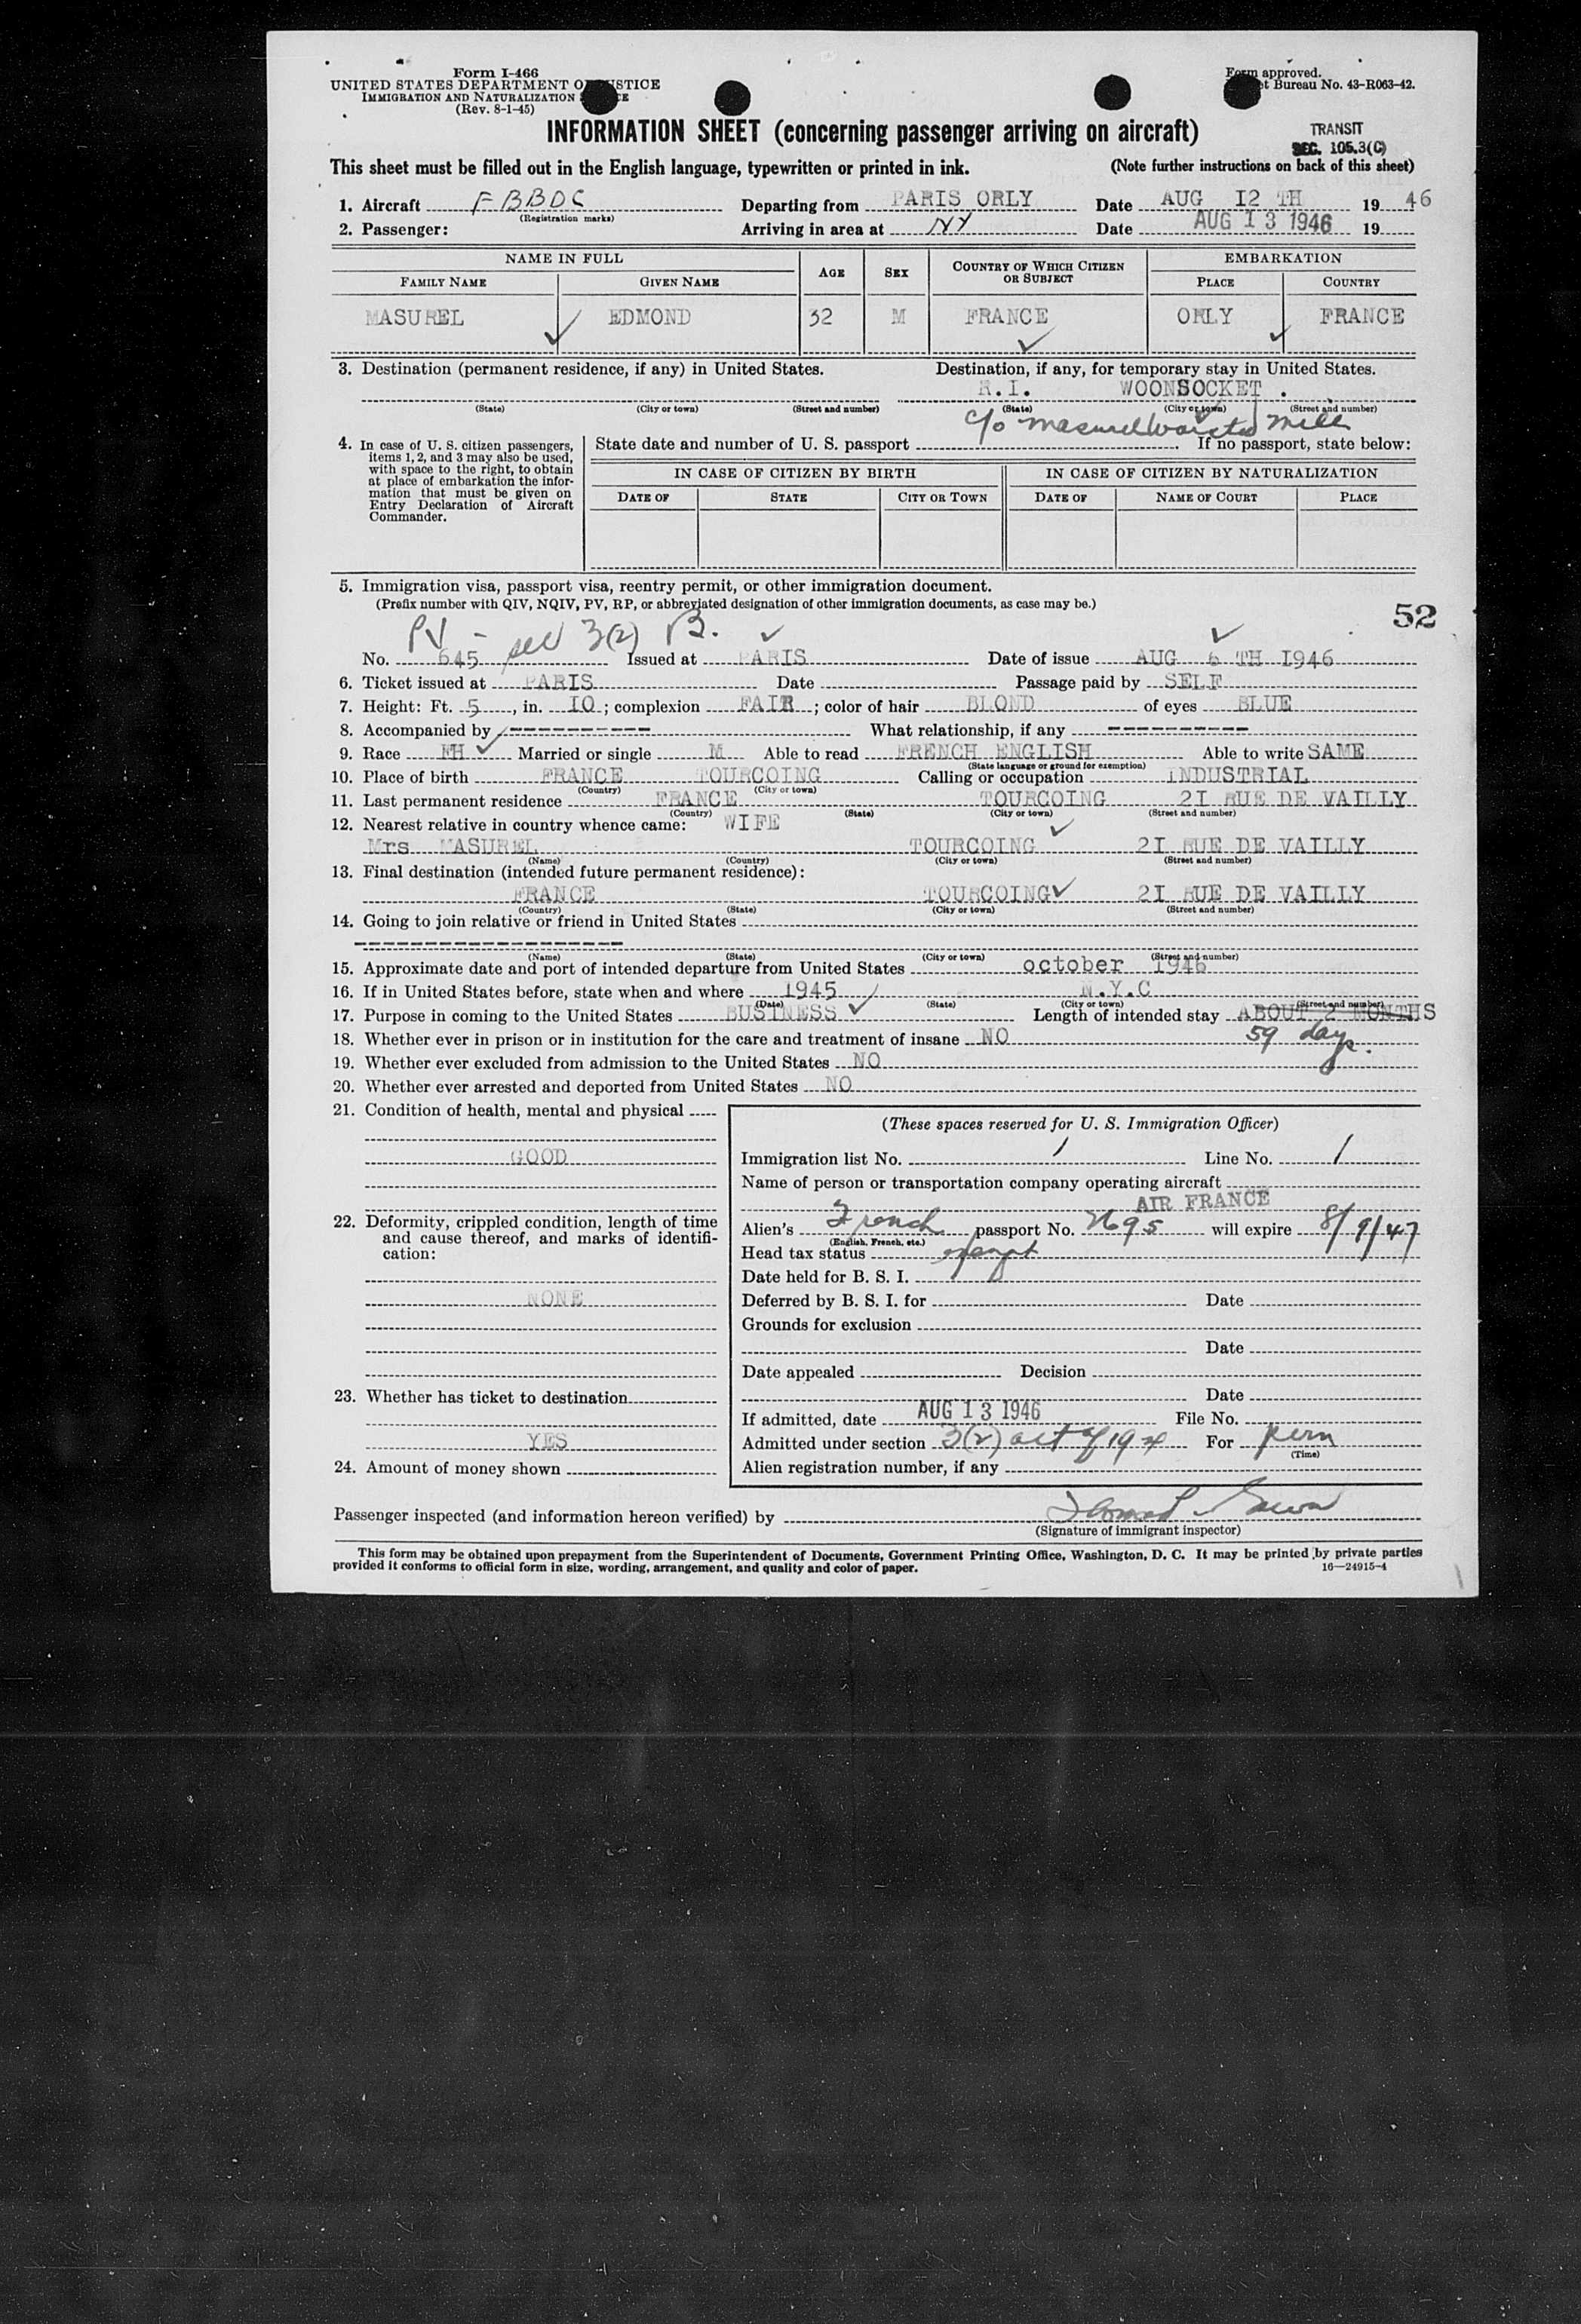 Form I-466
UNITED STATES DEPARTMENT OF JUSTICE
IMMIGRATION AND NATURALIZATION
(Rev. 8-1-45)
Form approved.
Bureau No. 43-R063-42.
INFORMATION SHEET (concerning passenger arriving on aircraft)
TRANSIT
SEC. 105.3(C)
This sheet must be filled out in the English language, typewritten or printed in ink. (Note further instructions on back of this sheet)
1. Aircraft FBBDC Departing from PARIS ORLY Date AUG I2 TH 19 46
(Registration marks)
2. Passenger: Arriving in area at NY Date AUG 13 1946 19
NAME IN FULL AGE SEX COUNTRY OF WHICH CITIZEN OR SUBJECT EMBARKATION
FAMILY NAME GIVEN NAME PLACE COUNTRY
MASUREL EDMOND 32 M FRANCE ORLY FRANCE
3. Destination (permanent residence, if any) in United States. Destination, if any, for temporary stay in United States.
R.I. WOONSOCKET .
(State) (City or town) (Street and number) (State) (City or town) (Street and number)
c/o Masurel Mill
4. In case of U. S. citizen passengers, items 1, 2, and 3 may also be used, with space to the right, to obtain at place of embarkation the information that must be given on Entry Declaration of Aircraft Commander.
State date and number of U. S. passport . If no passport, state below:
IN CASE OF CITIZEN BY BIRTH IN CASE OF CITIZEN BY NATURALIZATION
DATE OF STATE CITY OR TOWN DATE OF NAME OF COURT PLACE
5. Immigration visa, passport visa, reentry permit, or other immigration document.
(Prefix number with QIV, NQIV, PV, RP, or abbreviated designation of other immigration documents, as case may be.)
52
PV - sec 3(2) B.
No. 645 Issued at PARIS Date of issue AUG 6 TH I946
6. Ticket issued at PARIS Date Passage paid by SELF
7. Height: Ft. 5, in. IO; complexion FAIR; color of hair BLOND of eyes BLUE
8. Accompanied by ---------- What relationship, if any ----------
9. Race FH Married or single M Able to read FRENCH ENGLISH Able to write SAME
(State language or ground for exemption)
10. Place of birth FRANCE TOURCOING Calling or occupation INDUSTRIAL
(Country) (City or town)
11. Last permanent residence FRANCE TOURCOING 2I RUE DE VAILLY
(Country) (State) (City or town) (Street and number)
12. Nearest relative in country whence came: WIFE
Mrs MASUREL TOURCOING 2I RUE DE VAILLY
(Name) (Country) (City or town) (Street and number)
13. Final destination (intended future permanent residence):
FRANCE TOURCOING 2I RUE DE VAILLY
(Country) (State) (City or town) (Street and number)
14. Going to join relative or friend in United States
-------------------
(Name) (State) (City or town) (Street and number)
15. Approximate date and port of intended departure from United States october I946
16. If in United States before, state when and where I945 N.Y.C
(Date) (State) (City or town) (Street and number)
17. Purpose in coming to the United States BUSINESS Length of intended stay ABOUT 2 MONTHS
18. Whether ever in prison or in institution for the care and treatment of insane NO 59 days.
19. Whether ever excluded from admission to the United States NO
20. Whether ever arrested and deported from United States NO
21. Condition of health, mental and physical
GOOD
22. Deformity, crippled condition, length of time and cause thereof, and marks of identification:
NONE
23. Whether has ticket to destination
YES
24. Amount of money shown
(These spaces reserved for U. S. Immigration Officer)
Immigration list No. 1 Line No. 1
Name of person or transportation company operating aircraft
AIR FRANCE
Alien's French passport No. 2695 will expire 8/9/47
(English, French, etc.)
Head tax status exempt
Date held for B. S. I.
Deferred by B. S. I. for Date
Grounds for exclusion
Date
Date appealed Decision
Date
If admitted, date AUG 13 1946 File No.
Admitted under section 3(2) act of 1924 For
(Time)
Alien registration number, if any
Passenger inspected (and information hereon verified) by
(Signature of immigrant inspector)
This form may be obtained upon prepayment from the Superintendent of Documents, Government Printing Office, Washington, D. C. It may be printed by private parties
provided it conforms to official form in size, wording, arrangement, and quality and color of paper. 16—24915-4